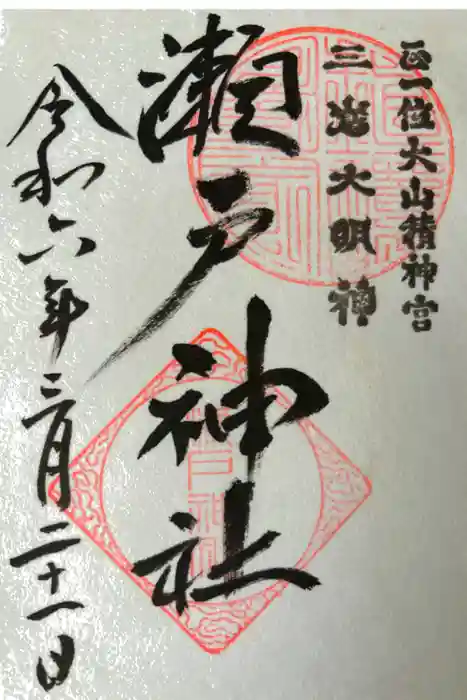 正一位大山積神宮
三島大明神
瀬戸神社
令和六年三月二十一日